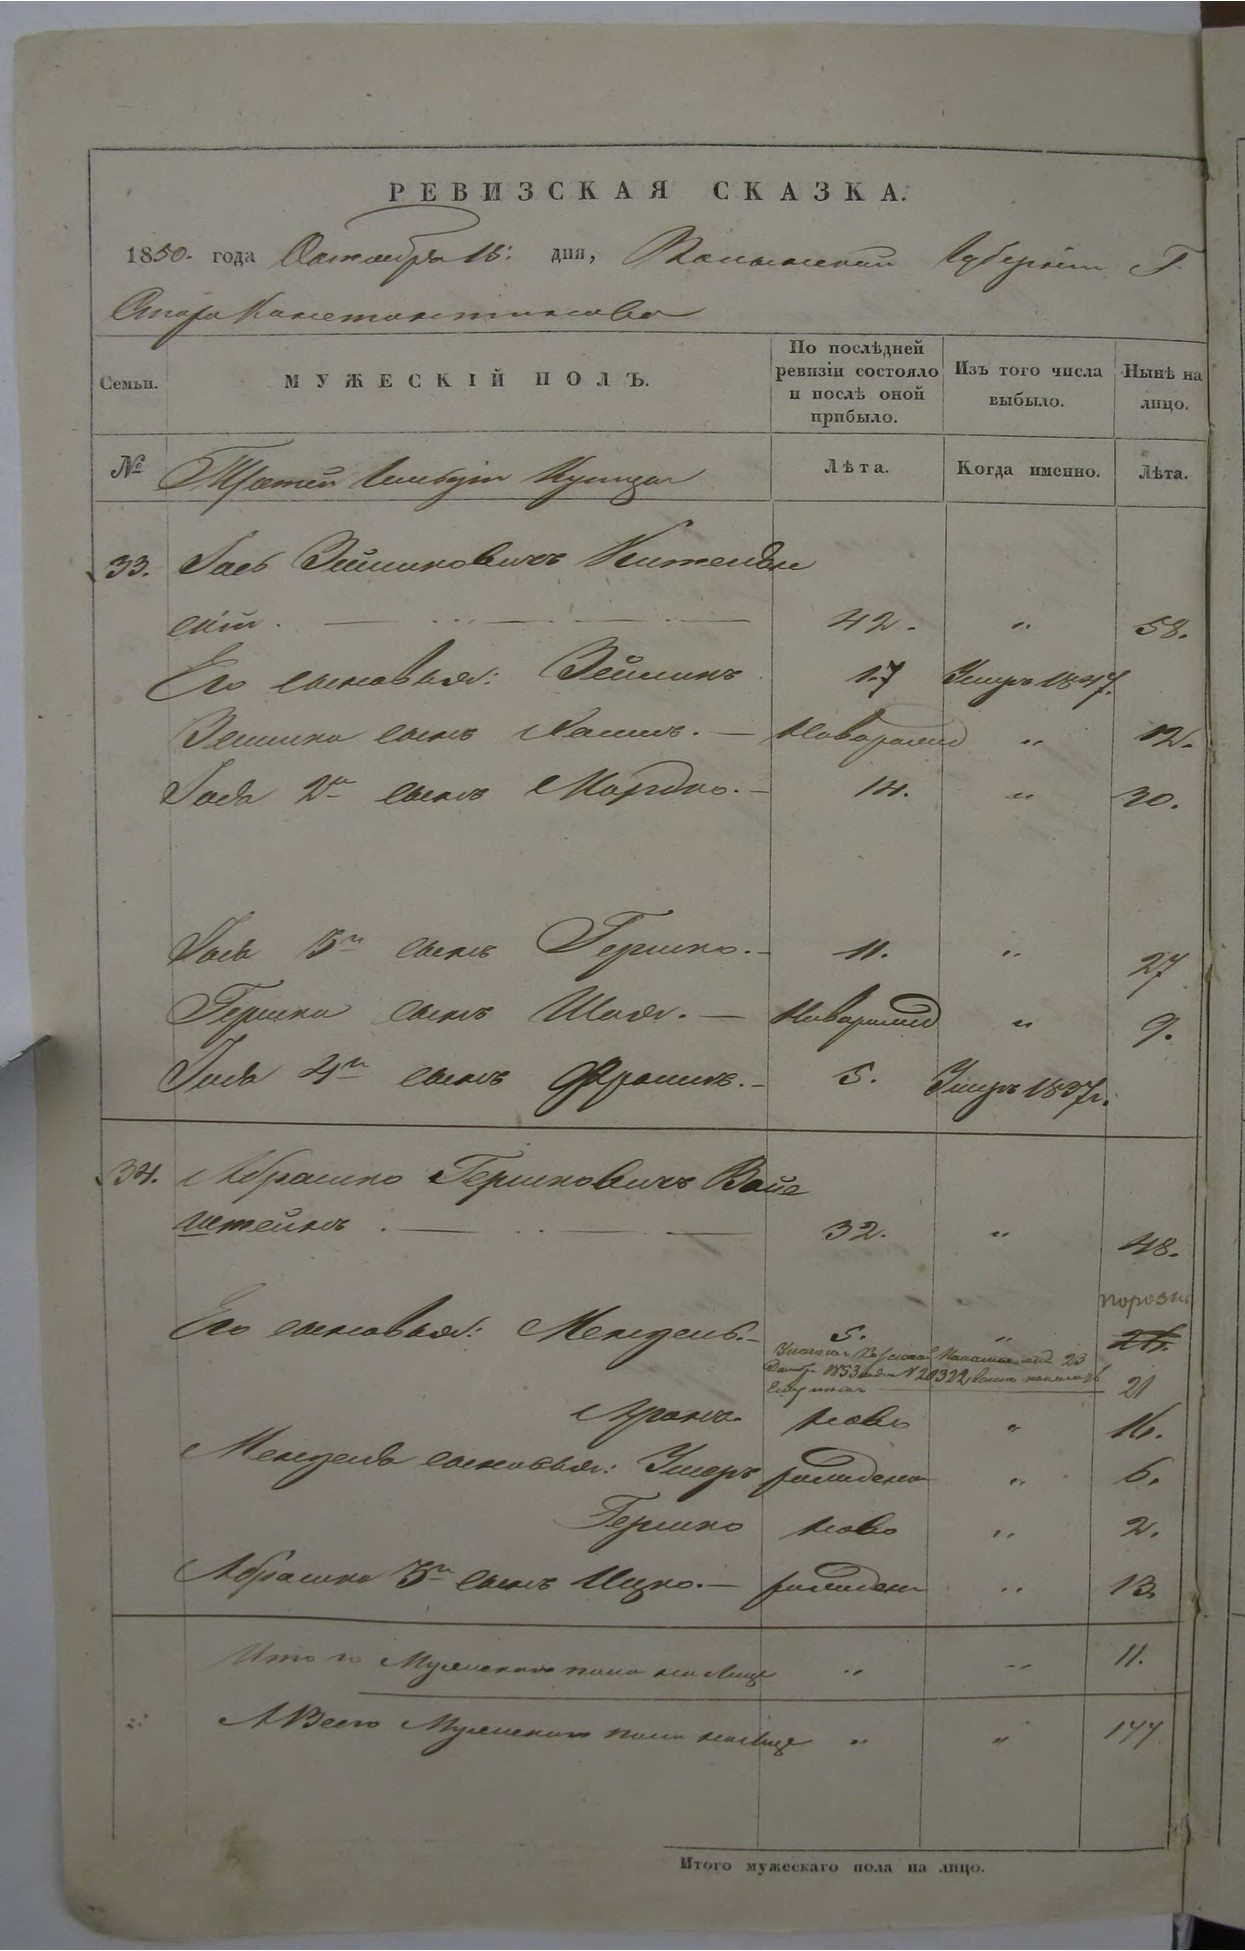 РЕВИЗСКАЯ СКАЗКА.
1850. года Октября 15: дня, Волынской Губерніи Г.
Старо Константинова
Семьи.
МУЖЕСКІЙ ПОЛЪ.
По послѣдней ревизіи состояло и послѣ оной прибыло.
Изъ того числа выбыло.
Нынѣ на лицо.
№ Третей Гильдіи Купцы Лѣта. Когда именно. Лѣта.
33. Іось Зейликовичъ
скій. 42. " 58.
Его сыновья: Зейликъ 17 Умеръ 1847.
Зейлика сынъ Хаимъ. — Новорожд " 12.
Іося 2й сынъ Мордко. — 14. " 30.
Іося 3й сынъ Гершко. — 11. " 27
Гершка сынъ Шая. — Новорожд " 9.
Іося 4й сынъ Фроимъ. — 5. Умеръ 1837г.
34. Абрашко Гершковичъ Вайн
штейнъ. 32. " 48.
Его сыновья: Мендель. — 5. " 21.
1853 года № 20322 21
Аронъ. ново " 16.
Менделя сыновья: Ушеръ рожденн " 6.
Гершко ново " 2.
Абрашка 3й сынъ Ицко. — рожден " 13.
Итого Мужескаго пола на Лице " " 11.
А Всего Мужескаго пола на лице " " 144
Итого мужескаго пола на лицо.